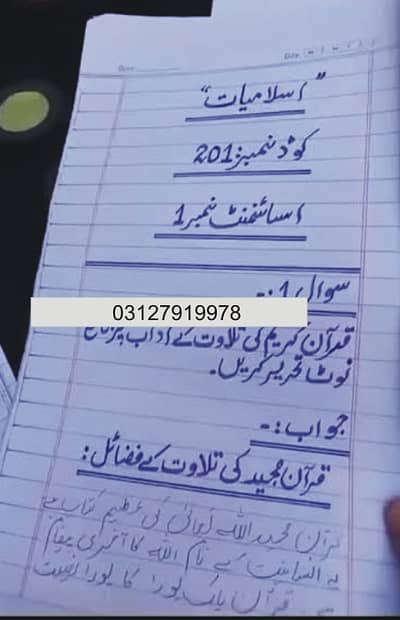 "اسلامیات"
کوڈ نمبر: 201
اسائنمنٹ نمبر 1
سوال 1:-
03127919978
قرآن کریم کی تلاوت کے آداب پر
نوٹ تحریر کریں۔
جواب:-
قرآن مجید کی تلاوت کے فضائل:
قرآن مجید اللہ تعالیٰ کی عظیم کتاب ہے
یہ انسانیت کے نام اللہ کا آخری پیغام
ہے۔ قرآن پاک پورا کا پورا